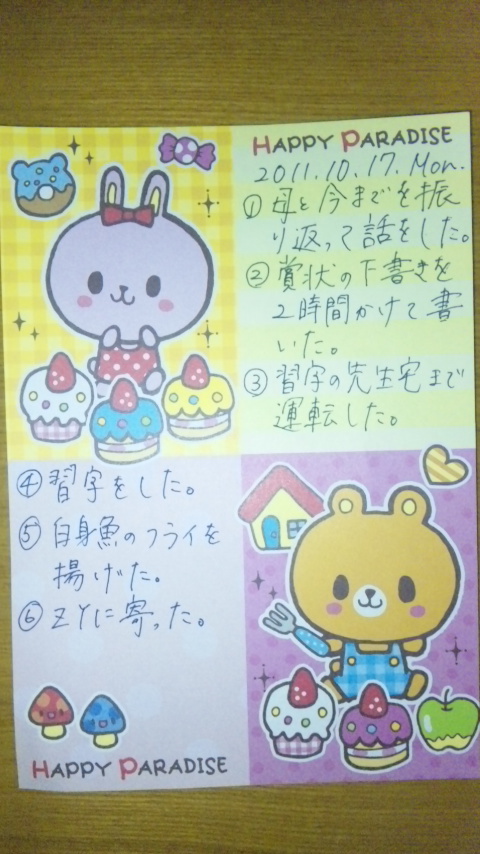 HAPPY PARADISE
2011.10.17.Mon.
①母と今までを振
り返って話をした。
②賞状の下書きを
2時間かけて書
いた。
③習字の先生宅まで
運転した。
④習字をした。
⑤白身魚のフライを
揚げた。
⑥ZYに寄った。
HAPPY PARADISE